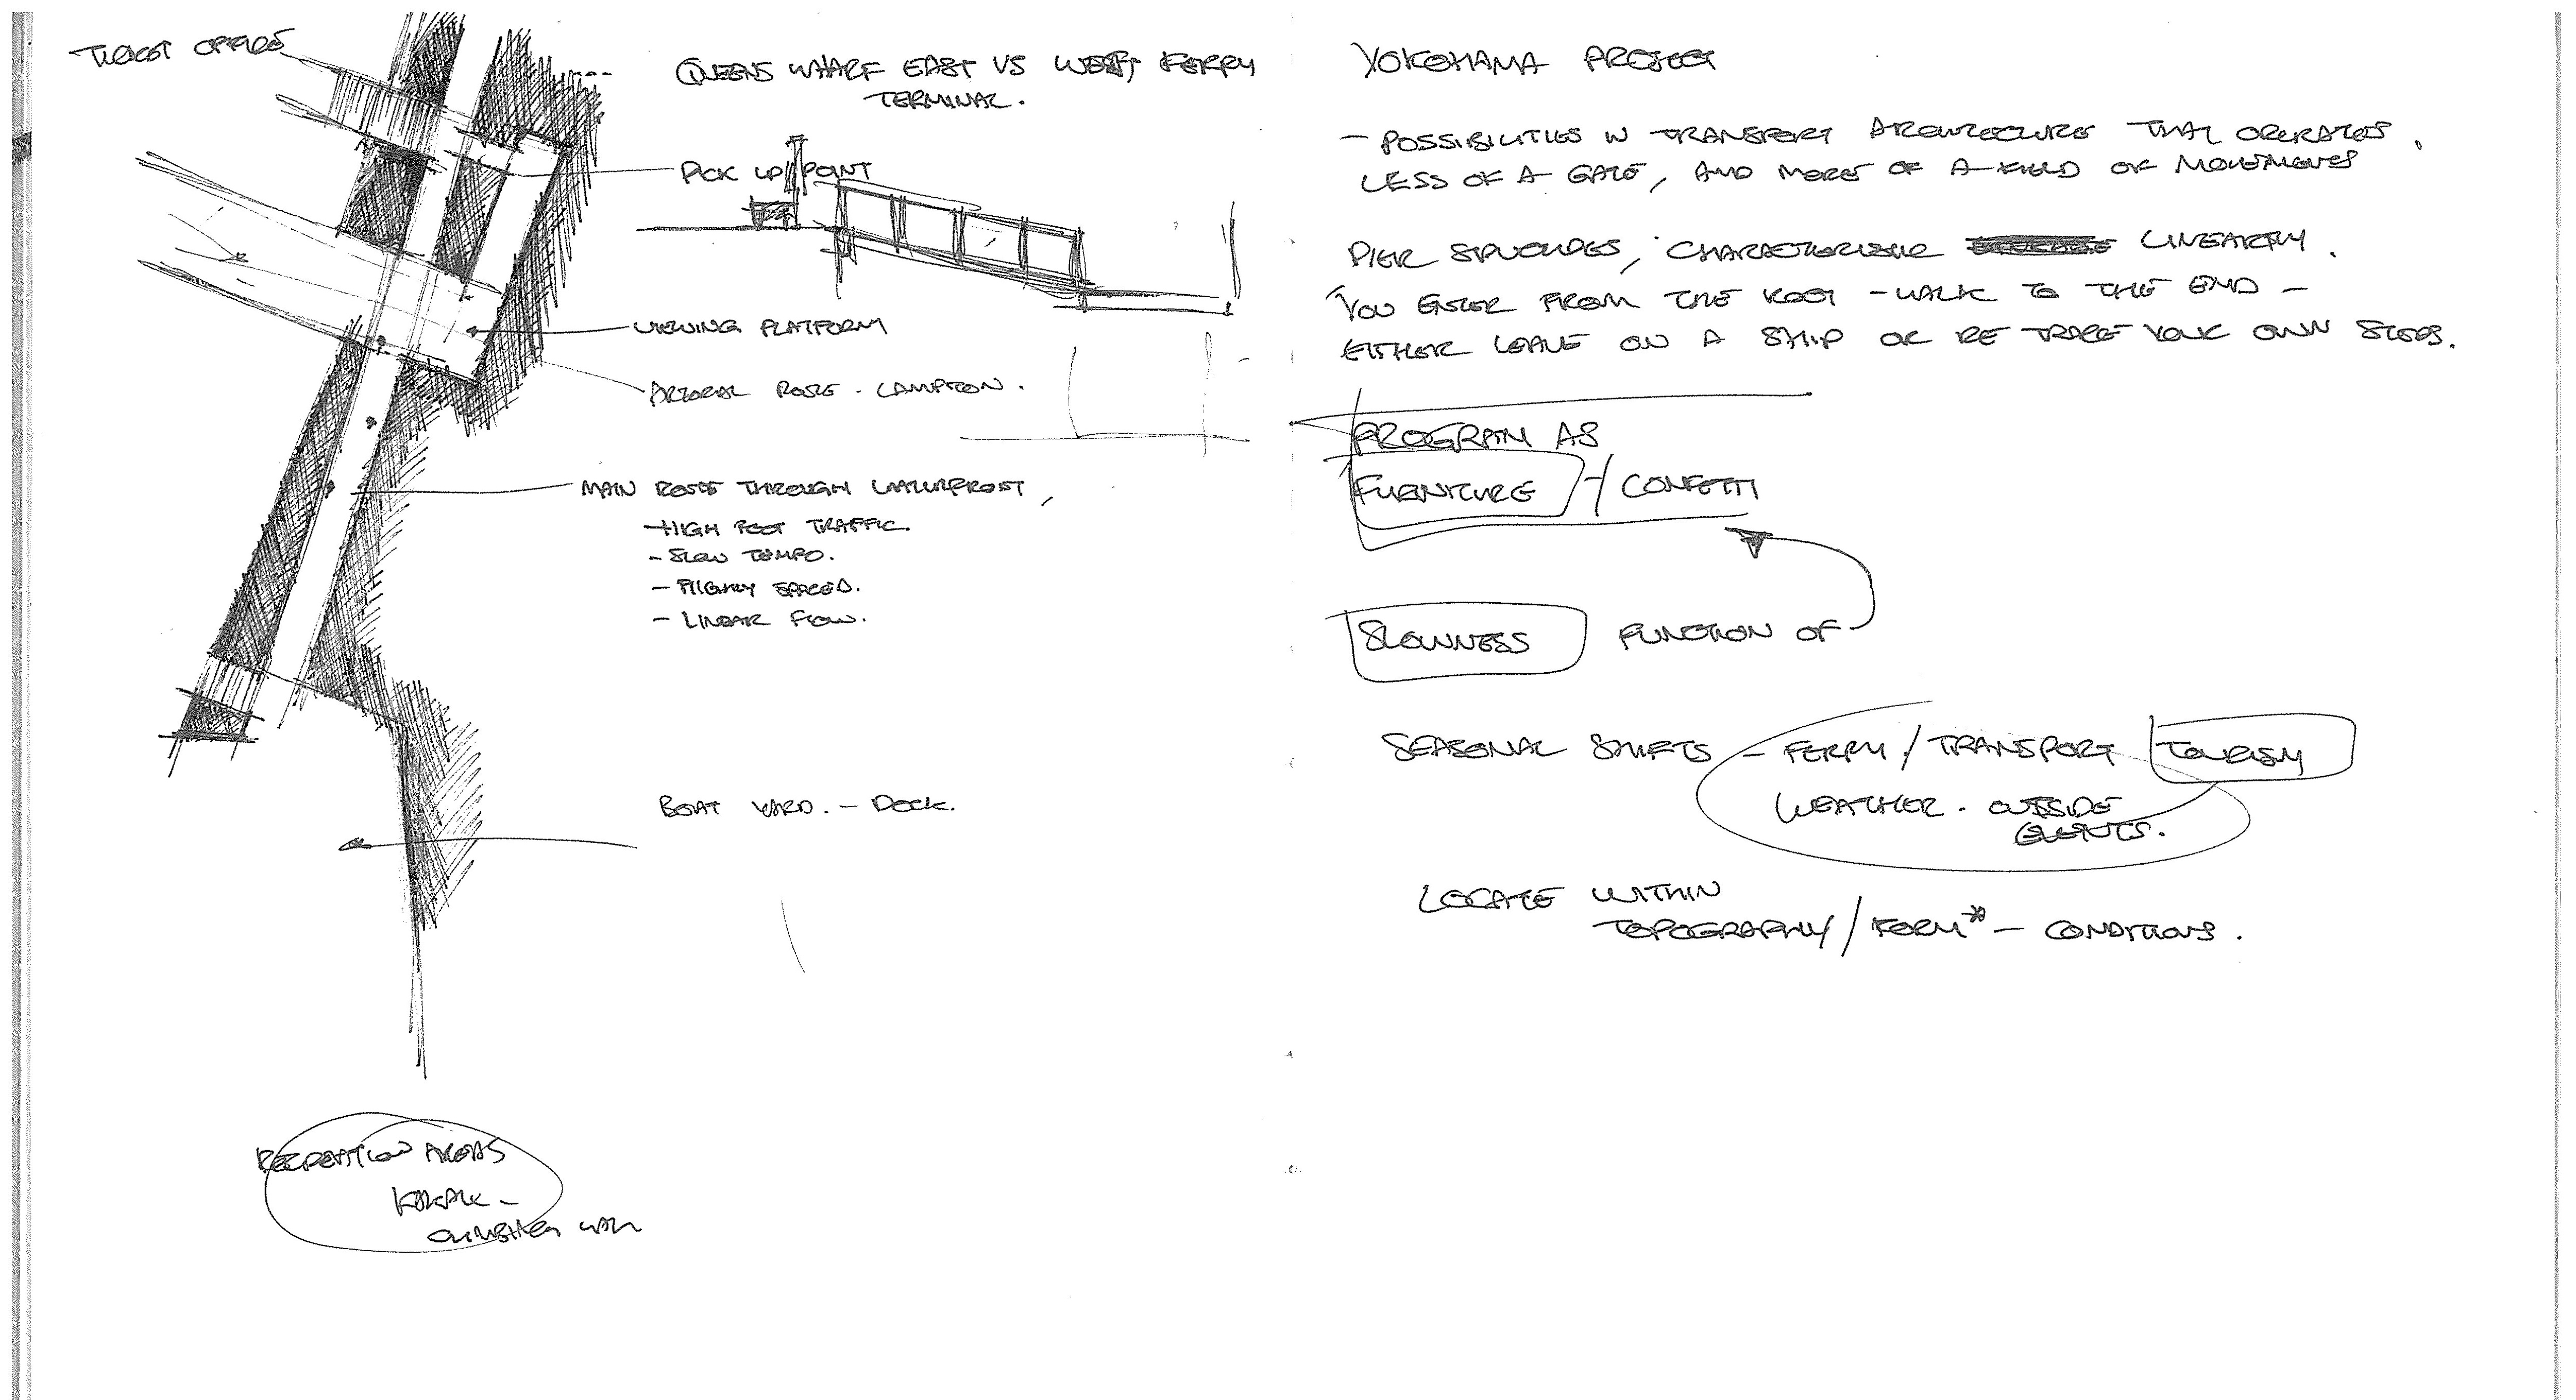 TICKET OFFICE
QUEENS WHARF EAST VS WEST FERRY
TERMINAL.
PICK UP POINT
VIEWING PLATFORM
ROUTE - LAMPTON.
MAIN ROUTE THROUGH WATERFRONT,
- HIGH FOOT TRAFFIC.
- SLOW TEMPO.
- HIGHLY SPACED.
- LINEAR FLOW.
BOAT YARD. - DOCK.
RECREATION AREAS
KAYAK -
CLIMBING WALL
YOKOHAMA PROJECT
- POSSIBILITIES IN TRANSPORT ARCHITECTURE THAT OPERATES
LESS OF A GATE, AND MORE OF A FIELD OF MOVEMENTS
PIER STRUCTURES, CHARACTERISTIC LINEARITY.
YOU ENTER FROM THE ROOT - WALK TO THE END -
EITHER LEAVE ON A SHIP OR RE TRACE YOUR OWN STEPS.
PROGRAM AS
FURNITURE / CONFETTI
SLOWNESS FUNCTION OF
SEASONAL SHIFTS - FERRY / TRANSPORT TOURISM
WEATHER. OUTSIDE
EVENTS.
LOCATE WITHIN
TOPOGRAPHY / FORM* - CONDITIONS.